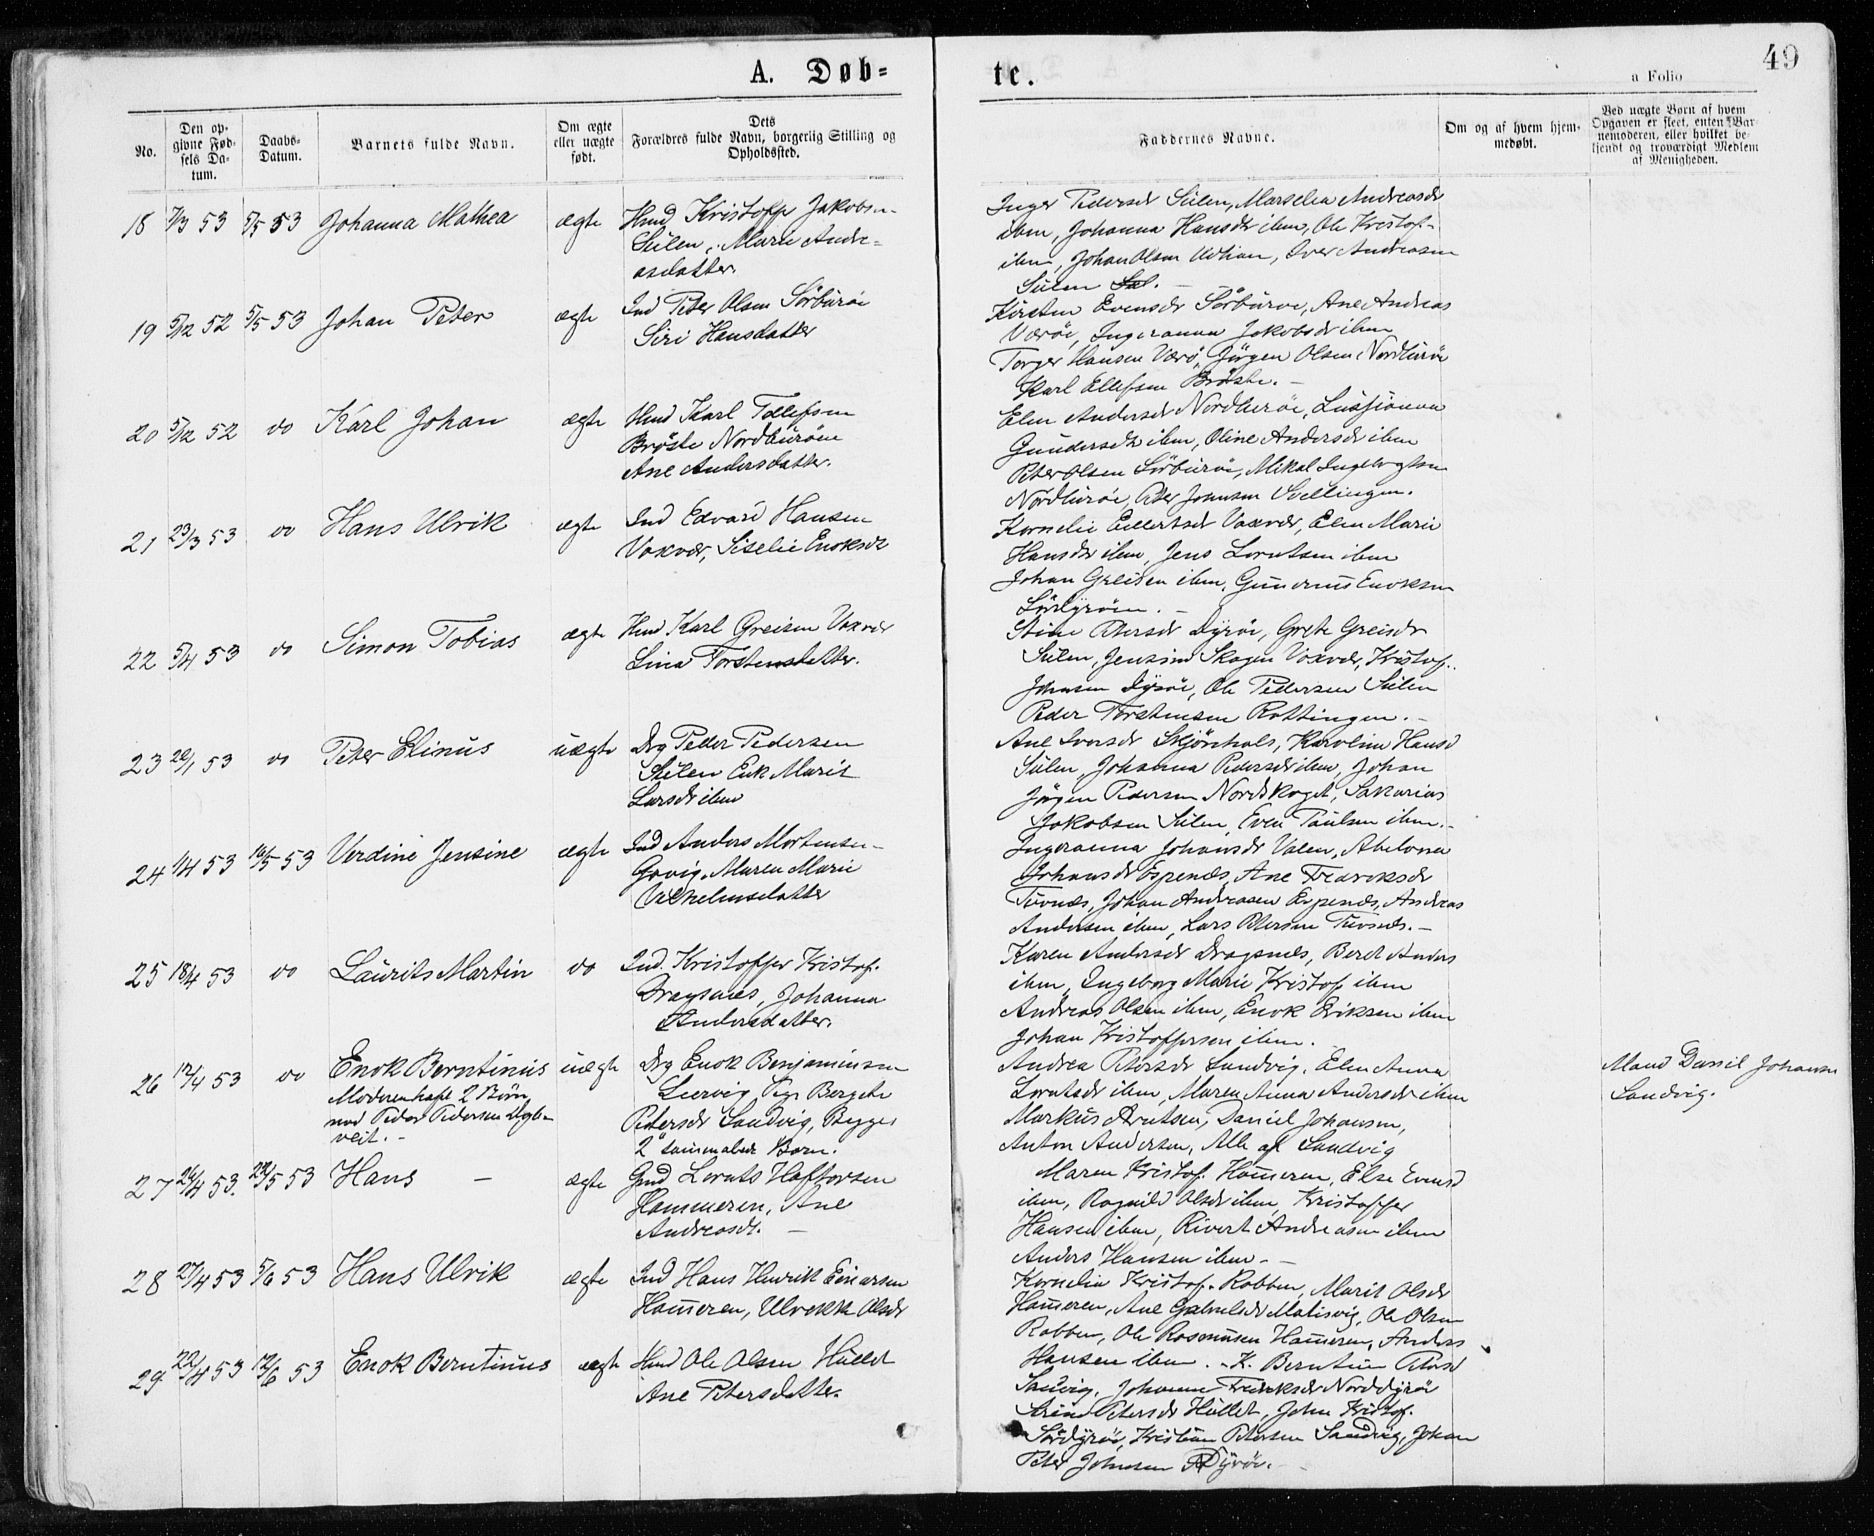 49
A. Døb=
te.
a Folio
No.
Den op-
givne Fød-
sels Da-
tum.
Daabs-
Datum.
Barnets fulde Navn.
Om ægte
eller uægte
født.
Dets
Forældres fulde Navn, borgerlig Stilling og
Opholdssted.
Faddernes Navne.
Om og af hvem hjem-
medøbt.
Ved uægte Børn af hvem
Opgaven er skeet, enten Bar-
nemoderen, eller hvilket be-
kjendt og troværdigt Medlem
af Menigheden.
18 7/3 53 5/5 53 Johanna Mathea ægte Hmd Kristoffer Jakobsen
Sulen, Maren Andre=
asdatter.
Inger Pedersdr Sulen, Marselia Andreasdr
ibm, Johanna Hansdr ibm, Ole Kristof-
ibm, Johan Olsen, Iver Andreasen
Sulen
19 5/12 52 5/5 53 Johan Peter ægte Ind Peter Olsen Sørburøe
Siri Hansdatter
Kirsten Evensdr Sørburøe, Ane Andreas
Værøe, Ingeranna Jakobsdr ibm
Torger Hansen Værø, Jörgen Olsen, Nordburøe
Karl Ellefsen Brøske. -
20 5/12 52 do Karl Johan ægte Hmd Karl Tollefsen
Brøske Nordburøen
Ane Andersdatter.
Elen Andersdr Nordburøe,
Gundersdr ibm, Oline Andersdr ibm
Peter Olsen Sørburøe, Mikal Ingebrigtsen
Nordburøe, Peter Johnsen Svellingen.
21 23/3 53 do Hans Ulrik ægte Ind Edvard Hansen
Vaxvær, Siselie Enoksdr
Kornelie Eilertsdr Vaxvær, Elen Marie
Hansdr ibm, Jens Lorntsen ibm
Johan Greisen ibm, Gunerius Enoksen
Sördyröen. -
22 5/4 53 do Simon Tobias ægte Hmd Karl Greisen Vaxvær
Lina Torstensdatter.
Stine Petersdr Dyröe, Grete Greisdr
Sulen, Jensine Skagen Voxvær, Kristof.
Johnsen Dyröe, Ole Pedersen Sulen
Peder Torstensen Rottingen. -
23 20/1 53 do Peter Elinus uægte Drg Peder Pedersen
Sulen Enk Marit
Larsdr ibm
Ane Iversdr Stjörnhals, Karoline Hansd
Sulen, Johanna Pedersdr ibm, Johan
Jörgen Pedersen Nordskaget, Sakarias
Jakobsen Sulen, Even Paulsen ibm. -
24 1/4 53 16/5 53 Verdine Jensine ægte Ind Anders Mortensen
Gjøvig, Maren Marie
Vilhelmsdatter
Ingeranna Johansdr Valen, Abelona
Johansdr Espenæs, Ane Fredriksdr
Tuvnæs, Johan Andreasen Espenæs, Andreas
Andersen ibm, Lars Petersen Tuvnæs. -
25 18/4 53 do Laurits Martin do Ind. Kristoffer Kristof.
Dragsnes, Johanna
Andersdatter.
Karen Andersdr Dragsnes, Beret Anders
ibm, Ingeborg Marie Kristof ibm
Andreas Olsen ibm, Enok Eriksen ibm
Johan Kristoffersen ibm.
26 12/4 53 do Enok Berntinus uægte Drg Enok Benjaminsen
Moderen havt 2 Börn
med Peder Pedersen
veit. -
Leervig, Pige Bergete
Petersdr Sandvig, Begges
2det sammenlede Barn.
Andrea Petersdr Sandvig, Elen Anna
Lorntsdr ibm, Maren Anna Andersdr ibm
Markus Arntsen, Daniel Johansen,
Anton Andersen, Alle af Sandvig
Mand Daniel Johansen
Sandvig.
27 24/4 53. 22/5 53 Hans - ægte Gmd Lornts Haftorsen
Hammeren, Ane
Andreasdr. -
Maren Kristof. Hammeren, Else Evensd
ibm, Ragnild Olsdr ibm, Kristoffer
Hansen ibm, Sivert Andreasen ibm
Anders Hansen ibm. -
28 27/4 53 5/6 53 Hans Ulrik ægte Ind Hans Henrik Einarsen
Hammeren, Ulrikke Olsdr
Kornelia Kristof. Rabben, Marit Olsdr
Hammeren, Ane Gabrielsdr Malisvig, Ole Olsen
Rabben, Ole Rasmusen Hammeren, Anders
Hansen ibm. -
29 22/4 53 12/6 53 Enok Berntinus ægte Hmd Ole Olsen Hullet
Ane Petersdatter.
K. Berntine Petersd
Sandvig, Johanna Fredriksdr Norddyröe
Serine Petersdr Hullet, John Kristof.
Sördyröe, Kristian Petersen Sandvig, Johan
Peter Johnsen Dyröe. -